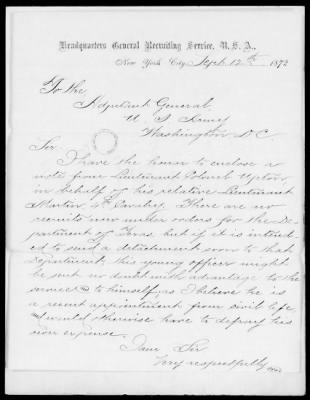 Headquarters General Recruiting Service, U.S.A.,
New York City, Sept. 12th 1872
To the
Adjutant General
U S Army
Washington D.C.
Sir
I have the honor to enclose a
note from Lieutenant Colonel Upton
in behalf of his relative Lieutenant
Martin, 4th Cavalry. There are no
recruits now under orders for the De
partment of Texas, but if it is intend
ed to send a detachment soon to that
Department, this young officer might
be sent no doubt with advantage to the
service & to himself, as I believe he is
a recent appointment from civil life
& would otherwise have to defray his
own expense.
Your Sir
Very respectfully